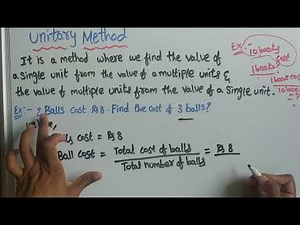 Unitary Method
It is a method where we find the value of
a Single unit from the value of a multiple units &
the value of multiple units from the value of a Single unit.
Ex:- 2 Balls cost Rs 8. Find the cost of 3 balls?
cost = Rs 8
Ball cost = Total cost of balls = Rs 8
Total number of balls
Ex:- 10 books
1 book